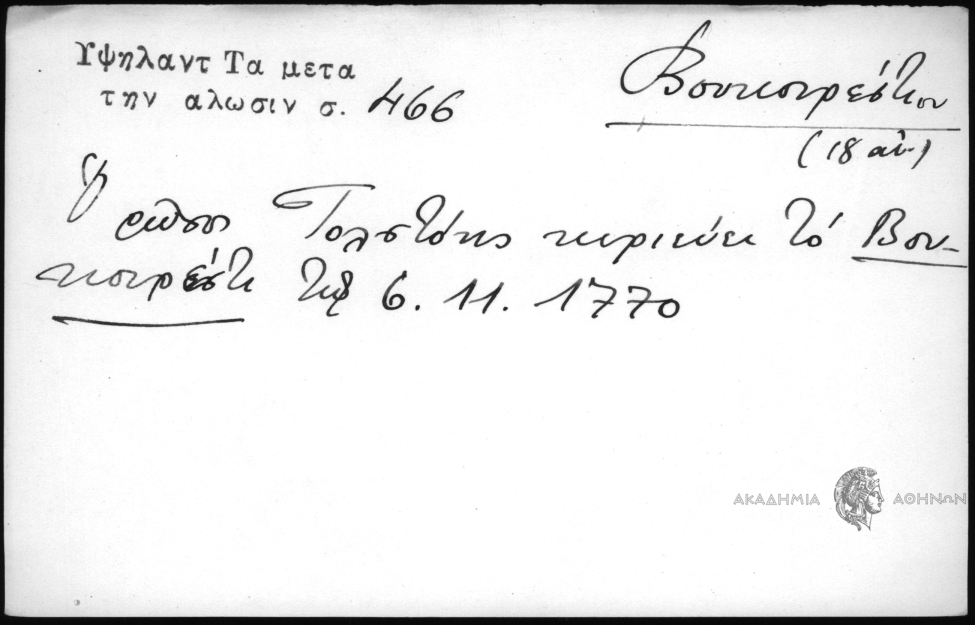 Υψηλαντ Τα μετα
την αλωσιν σ. 466
Βουκουρέστιον
(18 αι.)
Ὁ ρῶσος Τολστόης κυριεύει τό Βου-
κουρέστι τῇ 6. 11. 1770
ΑΚΑΔΗΜΙΑ ΑΘΗΝΩΝ